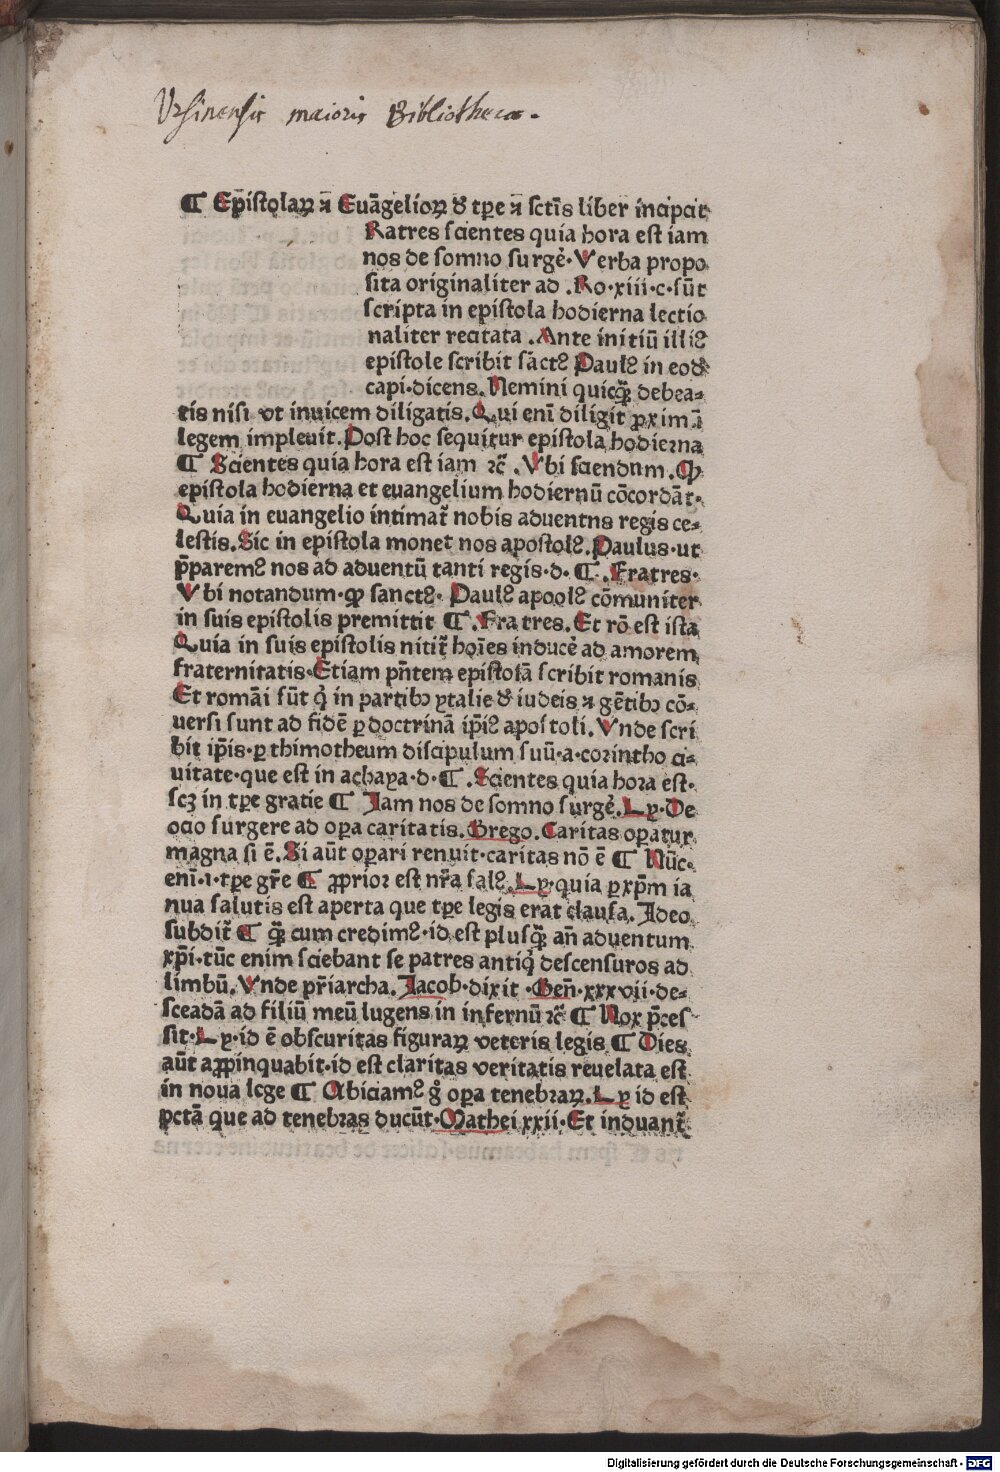 Ursinensis maioris Bibliothecæ.
¶ Ep̄istolaꝝ ⁊ Euāgelioꝝ ꝺ tp̱e ⁊ sctīs liber incipit
Ratres scientes quia hora est iam
nos de somno surgẻ· Verba propo
sita originaliter ad .Ro·xiii·c·sūt
scripta in epistola hodierna lectio
naliter recitata .Ante initiū illiꝰ
epistole scribit sāctꝰ Paulꝰ in eoꝺ
capi·dicens. Nemini quicq̄ꝫ debea-
tis nisi vt inuicem diligatis. Qui enī diligit ꝓximū
legem impleuit. Post hoc sequitur epistola hodierna
¶ Scientes quia hora est iam ⁊c̄ .Vbi sciendum .Qꝙ
epistola hodierna et euangelium hodiernū cōcordāt·
Quia in euangelio intimat̄ nobis aduentns regis ce-
lestis. Sic in epistola monet nos apostolꝰ. Paulus·ut
p̄paremꝰ nos ad aduentū tanti regis·d· ¶ .Fratres·
Vbi notandum·ꝙ sanctꝰ· Paulꝰ apoolꝰ cōmuniter
in suis epistolis premittit ¶ .Fratres. Et rō est ista
Quia in suis epistolis nitit̄ hoīes inducẻ ad amorem
fraternitatis· Etiam pn̄tem epistolā scribit romanis
Et romāi sūt q̇ in partibꝫ ytalie ꝺ iudeis ⁊ gētibꝫ cō-
uersi sunt ad fidē ꝑ doctrinā ip̄iꝰ apostoli. Vnde scri
bit ip̄is·ꝑ thimotheum discipulum suū·a·corintho ci-
uitate·que est in achaya·d· ¶ .Scientes quia hora est·
scꝫ in tp̱e gratie ¶ Jam nos de somno surgẻ. Ly· De
ocio surgere ad oꝑa caritatis. Grego. Caritas oꝑatur
magna si ē. Si aūt oꝑari renuit·caritas nō ē ¶ Nūc·
enī·i·tp̱e gr̄e ¶ ꝓprior est nr̄a salꝰ. Ly·quia ꝑ xp̄m ia
nua salutis est aperta que tp̱e legis erat clausa. Ideo
subdit̄ ¶ q̄ꝫ cum credimꝰ·id est plusq̄ꝫ an̄ aduentum
xp̄i·tūc enim sciebant se patres antiq̇ descensuros ad
limbū. Vnde pr̄iarcha. Jacob·dixit ·Gen̄·xxxvii·de-
sceadā ad filiū meū lugens in infernū ⁊c̄ ¶ Nox p̄ces
sit· Ly·id ē obscuritas figuraꝝ veteris legis ¶ Dies
aūt aꝓpinquabit·id est claritas veritatis reuelata est
in noua lege ¶ Abiciamꝰ g̊ oꝑa tenebraꝝ. Ly id est
pctā que ad tenebras ducūt· Mathei xxii· Et induant̄
Digitalisierung gefördert durch die Deutsche Forschungsgemeinschaft - DFG